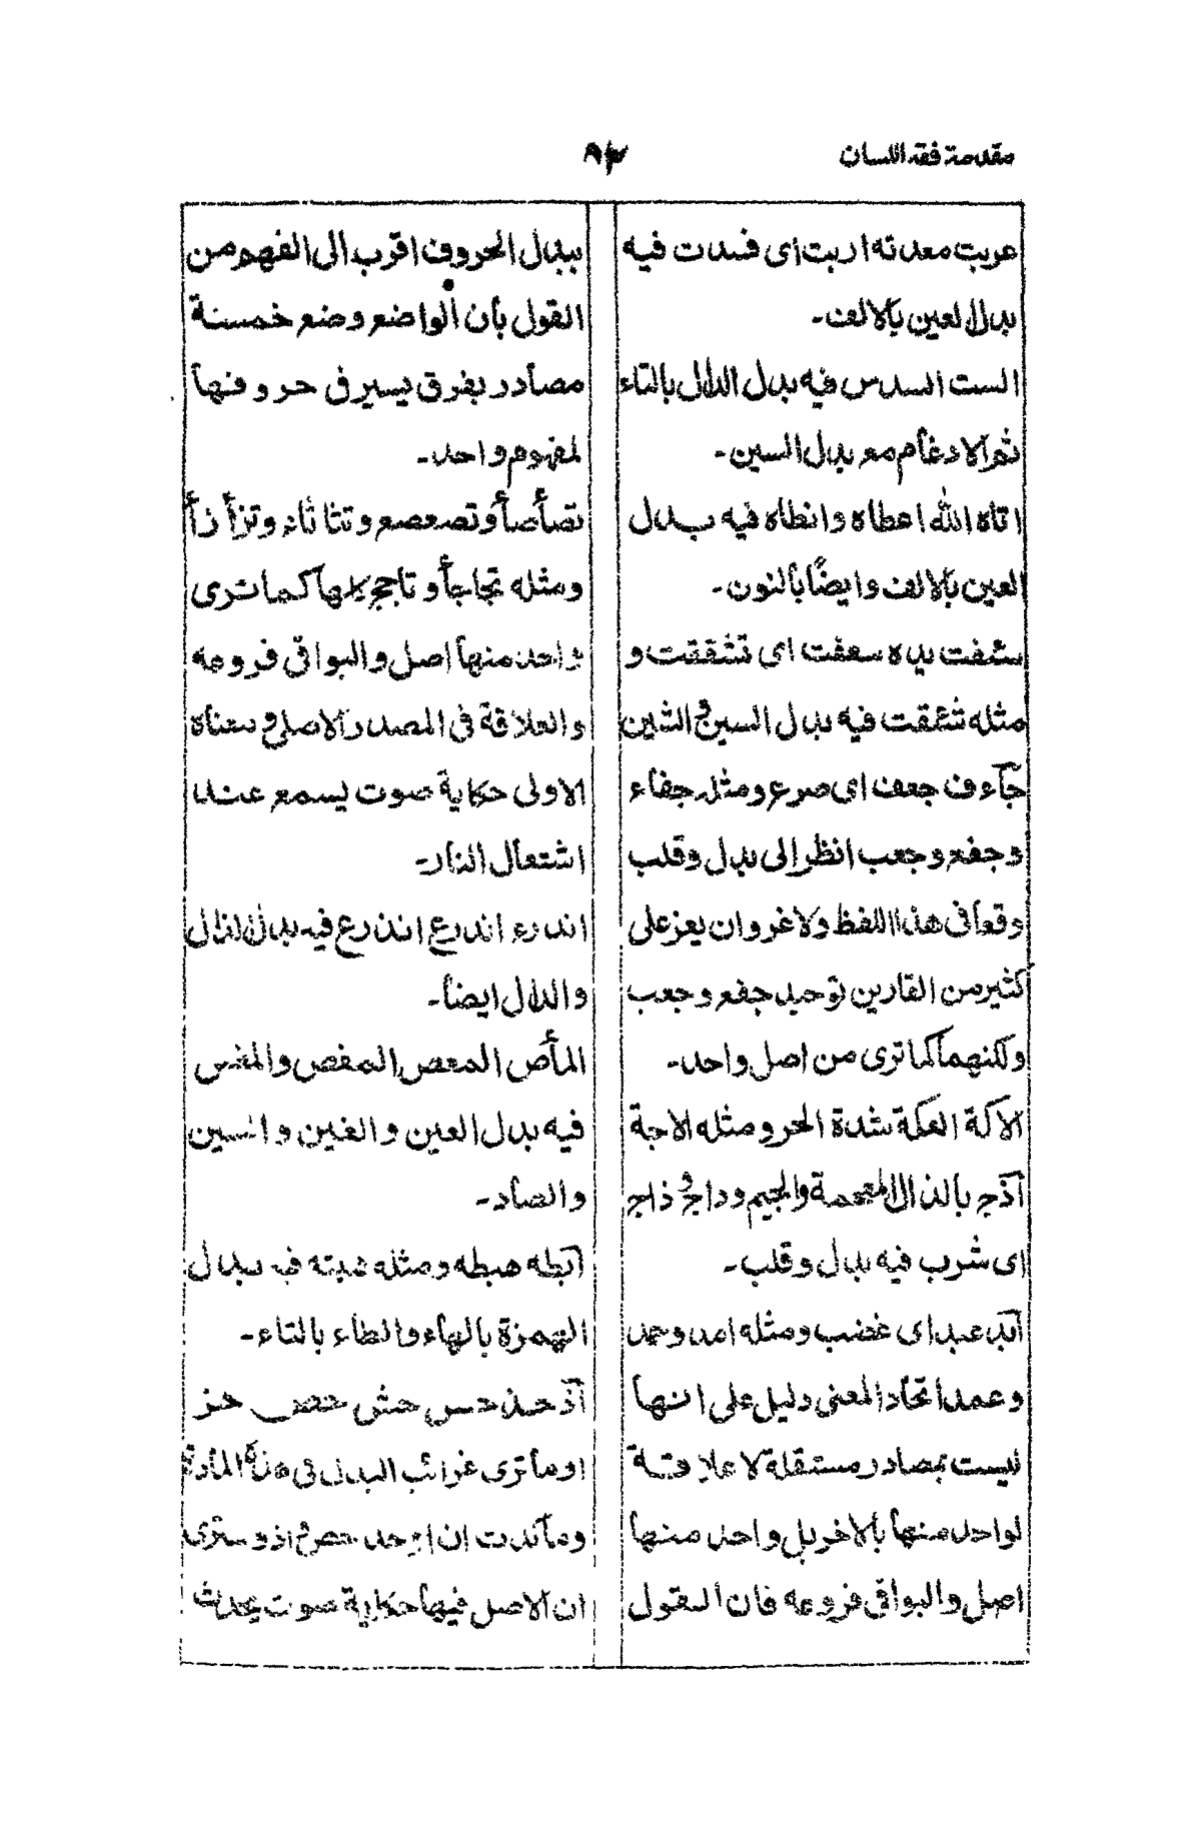 مقدمة فقه اللسان
٨٣
عربت معدته اربت اى فسدت فيه
بدل العين بالالف۔
الست السدس فيه بدل الدال بالتاء
ثم الادغام مع بدل السين۔
اتاه الله اعطاه وانطاه فيه بدل
العين بالالف وايضًا بالنون۔
سئفت يده سعفت اى تشققت و
مثله شئفت فيه بدل السين فى الشين
جآءف جعف اى صرع ومثله جفاء
وجفع وجعب انظر الى بدل وقلب
وقعا فى هذا اللفظ ولا غروان يعز على
كثير من القارين توحيد جفع وجعب
ولكنهما كما ترى من اصل واحد۔
الاكة العكة شدة الحر ومثله الاجة
آذج بالذال المعجمة والجيم وداج و ذاج
اى شرب فيه بدل وقلب۔
آبد عبد اى غضب ومثله امد وحمد
وعمد اتحاد المعنى دليل على انها
ليست بمصادر مستقلة لا علاقة
لواحد منها بالاخر بل واحد منها
اصل والبواقى فروعه فان القول
ببدل الحروف اقرب الى الفهم من
القول بان الواضع وضع خمسة
مصادر بفرق يسير فى حروفها
لمفهوم واحد۔
تصأصأ وتصعصع وتثا ثاء وتزأزأ
ومثله تجاجأ وتاجج كلها كما ترى
واحد منها اصل والبواقى فروعه
والعلاقة فى المصدر الاصلى ومعناه
الاولى حكاية صوت يسمع عند
اشتعال النار۔
اندرء اندرع انذرع فيه بدل الذال
والدال ايضا۔
المأص المعص المغص والمغس
فيه بدل العين والغين والسين
والصاد۔
آبطه هبطه ومثله هبته فيه بدل
الهمزة بالهاء والطاء بالتاء۔
آذ حذ حس حش حص حز
اوما ترى غرائب البدل فى هذه المادة
وما كدت ان اوحد حص واذ وسترى
ان الاصل فيها حكاية صوت يحدث